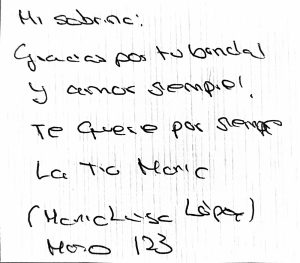 Mi sobrina:
Gracias por tu bondad
y amor siempre!
Te quiere por siempre
La Tia Maria
(Maria Luisa López)
123